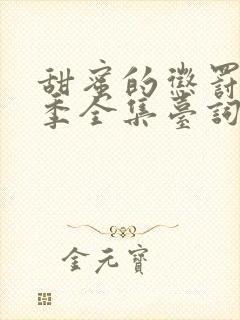 甜蜜的懲罰
季全集臺詞
金元寶